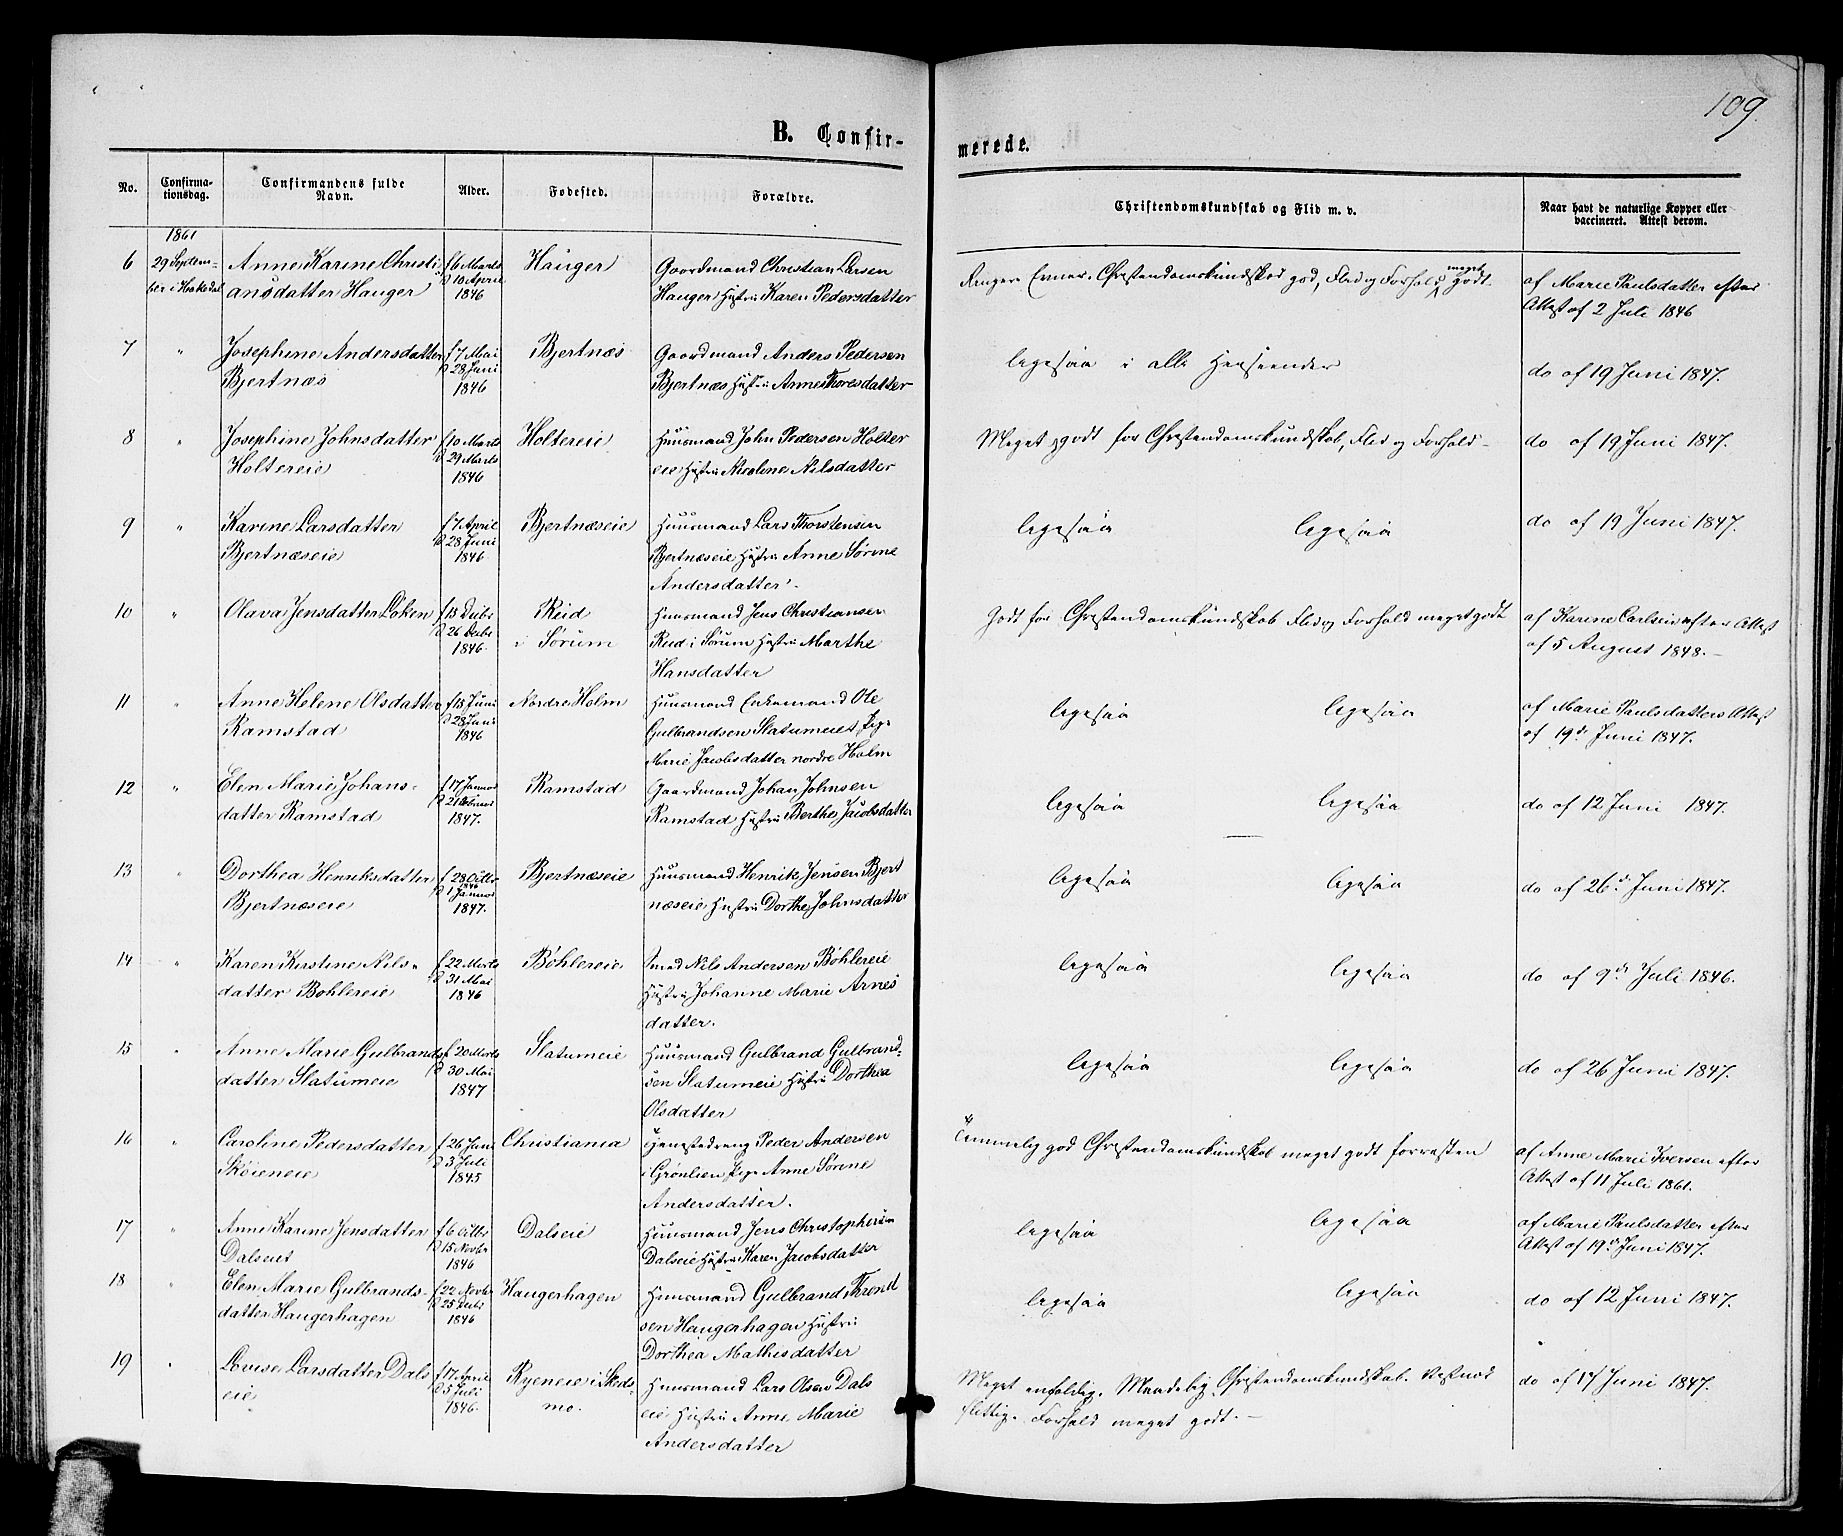 109.
B. Confir-
merede.
No.
Confirma-
tionsdag.
Confirmandens fulde
Navn.
Alder.
Fødested.
Forældre.
Christendomskundskab og Flid m. v.
Naar havt de naturlige Kopper eller
vaccineret. Attest derom.
1861
6 29 Septem- Anne Karine Christi- f 6 Marts Hauger Gaardmand Christian Larsen
ber i Hakedal ansdatter Hauger D 10 April Hauger Hustru Karen Pedersdatter
1846
Christendomskundskab god, Flid og Forhold meget Godt.
af Marie Paulsdatter efter
Attest af 2 Juli 1846
7 " Josephine Andersdatter f 7 Mai Bjertnæs Gaardmand Anders Pedersen
Bjertnæs D 28 Juni Bjertnæs Hustru Anne Thoresdatter
1846
ligesaa i alle Henseender
do af 19 Juni 1847.
8 " Josephine Johnsdatter f 10 Marts Holtereie Huusmand John Pedersen Holter
Holtereie D 29 Marts eie Hustru Nicoline Nilsdatter
1846
Meget godt for Christendomskundskab, Flid og Forhold -
do af 19 Juni 1847.
9 " Karine Larsdatter f 7 April Bjertnæseie Huusmand Lars Thorstensen
Bjertnæseie D 28 Juni Bjertnæseie Hustru Anne Sørine
1846 Andersdatter
ligesaa ligesaa
do af 19 Juni 1847.
10 " Olava Jensdatter Løken f 13 Decbr Reid Huusmand Jens Christiansen
D 26 Decbr i Sørum Reid i Sørum Hustru Marthe
1846 Hansdatter
Godt for Christendomskundskab Flid og Forhold meget godt
af Karine Carlsen efter Attest
af 5 August 1848.
11 " Anne Helene Olsdatter f 13 Juni Nordre Holm Huusmand Enkemand Ole
Ramstad D 28 Juni Gulbrandsen Slatumeiet Pige
1846 Marie Jacobsdatter nordre Holm
ligesaa ligesaa
af Marie Paulsdatters Attest
af 19de Juni 1847.
12 " Elen Marie Johans- f 17 Januar Ramstad Gaardmand Johan Johnsen
datter Ramstad D 21 Februar Ramstad Hustru Berthe Jacobsdatter
1847.
ligesaa ligesaa
do af 12 Juni 1847.
13 " Dorthea Henriksdatter f 28 Octbr Bjertnæseie Huusmand Henrik Jensen Bjert
1846
Bjertnæseie D 1 Januar næseie Hustru Dorthe Johnsdatter
1847.
ligesaa ligesaa
do af 26de Juni 1847.
14 " Karen Kirstine Nils- f 22 Marts Bøhlereie Smed Nils Andersen Bøhlereie
datter Bøhlereie D 31 Mai Hustru Johanne Marie Arnes
1846 datter.
ligesaa ligesaa
do af 9de Juli 1846.
15 " Anne Marie Gulbrands f 20 Marts Slatumeie Huusmand Gulbrand Gulbrand-
datter Slatumeie D 30 Mai sen Slatumeie Hustru Dorthea
1847 Olsdatter
ligesaa ligesaa
do af 26 Juni 1847.
16 " Caroline Pedersdatter f 26 Juni Christiania Peder Andersen
Skøieneie D 3 Juli i Grønlien Pige Anne Sørine
1845 Andersdatter.
Temmelig god Christendomskundskab meget godt forresten
af Anne Marie Iversen efter
Attest af 11 Juli 1861.
17 " Anne Karine Jensdatter f 6 Octbr Dalseie Huusmand Jens Christophersen
Dalseiet D 15 Novbr Dalseie Hustru Karen Jacobsdatter
1846
ligesaa ligesaa
af Marie Paulsdatter efter
Attest af 19de Juni 1847.
18 " Elen Marie Gulbrands- f 22 Novbr Haugerhagen Huusmand Gulbrand Thrond
datter Haugerhagen D 25 Decbr sen Haugerhagen Hustru
1846 Dorthea Mathisdatter
ligesaa ligesaa
do af 12 Juni 1847.
19 " Lovise Larsdatter Dals f 17 April Ryeneie i Skeds- Huusmand Lars Olsen Dals
eie D 5 Juli mo. eie Hustru Anne Marie
1846 Andersdatter
Meget enfoldig. Maadelig Christendomskundskab.
flittig. Forhold meget godt. -
do af 17 Juni 1847.